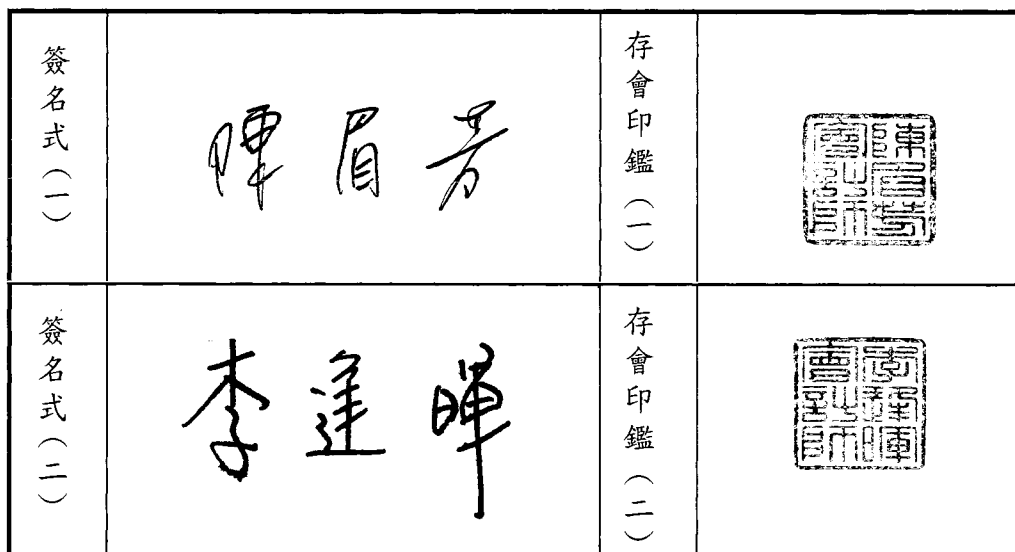 簽名式（一）
陳眉芳
存會印鑑（一）
陳眉芳會計師
簽名式（二）
李逢暉
存會印鑑（二）
李逢暉會計師